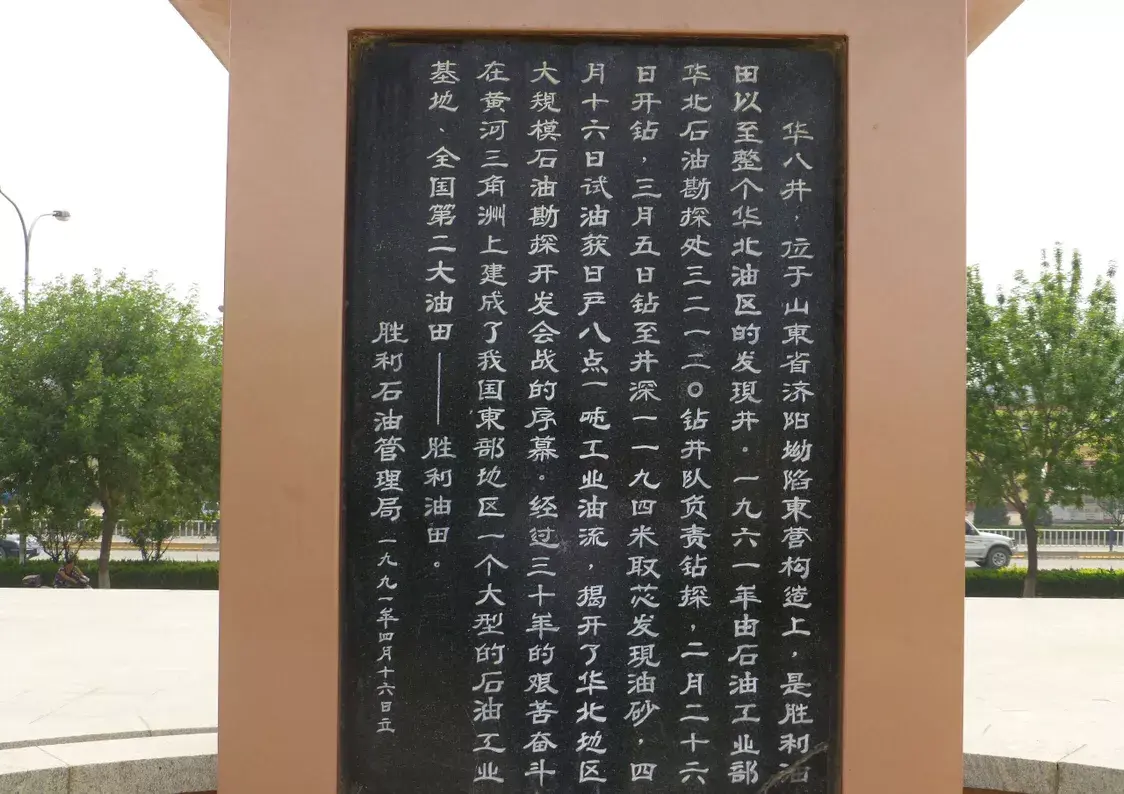 华八井，位于山東省济阳坳陷東营构造上，是胜利油
田以至整个华北油区的发现井。一九六一年由石油工业部
华北石油勘探处三二一二〇钻井队负责钻探，二月二十六
日开钻，三月五日钻至井深一一九四米取芯发现油砂，四
月十六日试油获日产八点一吨工业油流，揭开了华北地区
大规模石油勘探开发会战的序幕。经过三十年的艰苦奋斗
在黄河三角洲上建成了我国東部地区一个大型的石油工业
基地、全国第二大油田——胜利油田。
胜利石油管理局 一九九一年四月十六日立